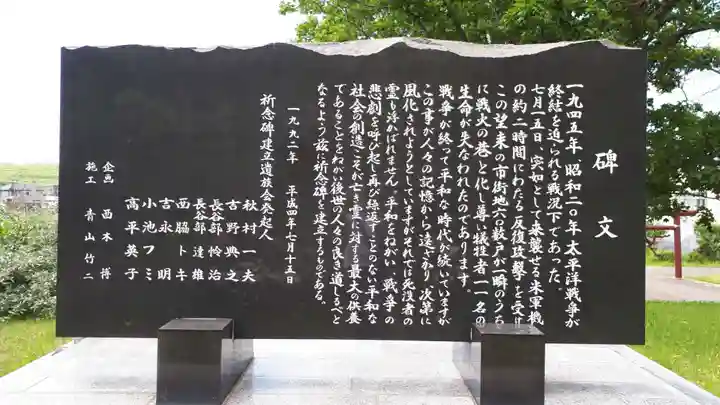 碑文
一九四五年(昭和二〇年)太平洋戦争が
終結を迫られる戦況下であった。
七月一五日、突如として来襲せる米軍機
の約二時間にわたる反復攻撃を受け
この望来の市街地六〇数戸が一瞬のうち
に戦火の巷と化し尊い犠牲者一一名の
生命が失なわれたのであります。
戦争が終って平和な時代が続いていますが
この事が人々の記憶から遠ざかり、次第に
風化されようとしていますがそれでは死没者の
霊も浮かばれません。平和をねがい、戦争の
悲劇を呼び起し再び繰返すことのない平和な
社会の創造こそが亡き霊に対する最大の供養
であることをねがい後世の人々の良き道しるべと
なるよう茲に祈念碑を建立するものである。
一九九二年 平成四年七月十五日
祈念碑建立遺族会発起人
秋村一夫
古野典之
長谷部怜治
長谷部達雄
西脇トキ
吉永明
小池フミ
高平英子
企画 西木博
施工 青山竹二